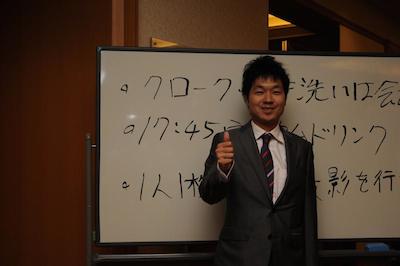 。クローク 洗い工会
。17:45 ムドリンク
。1人1枚 影を行